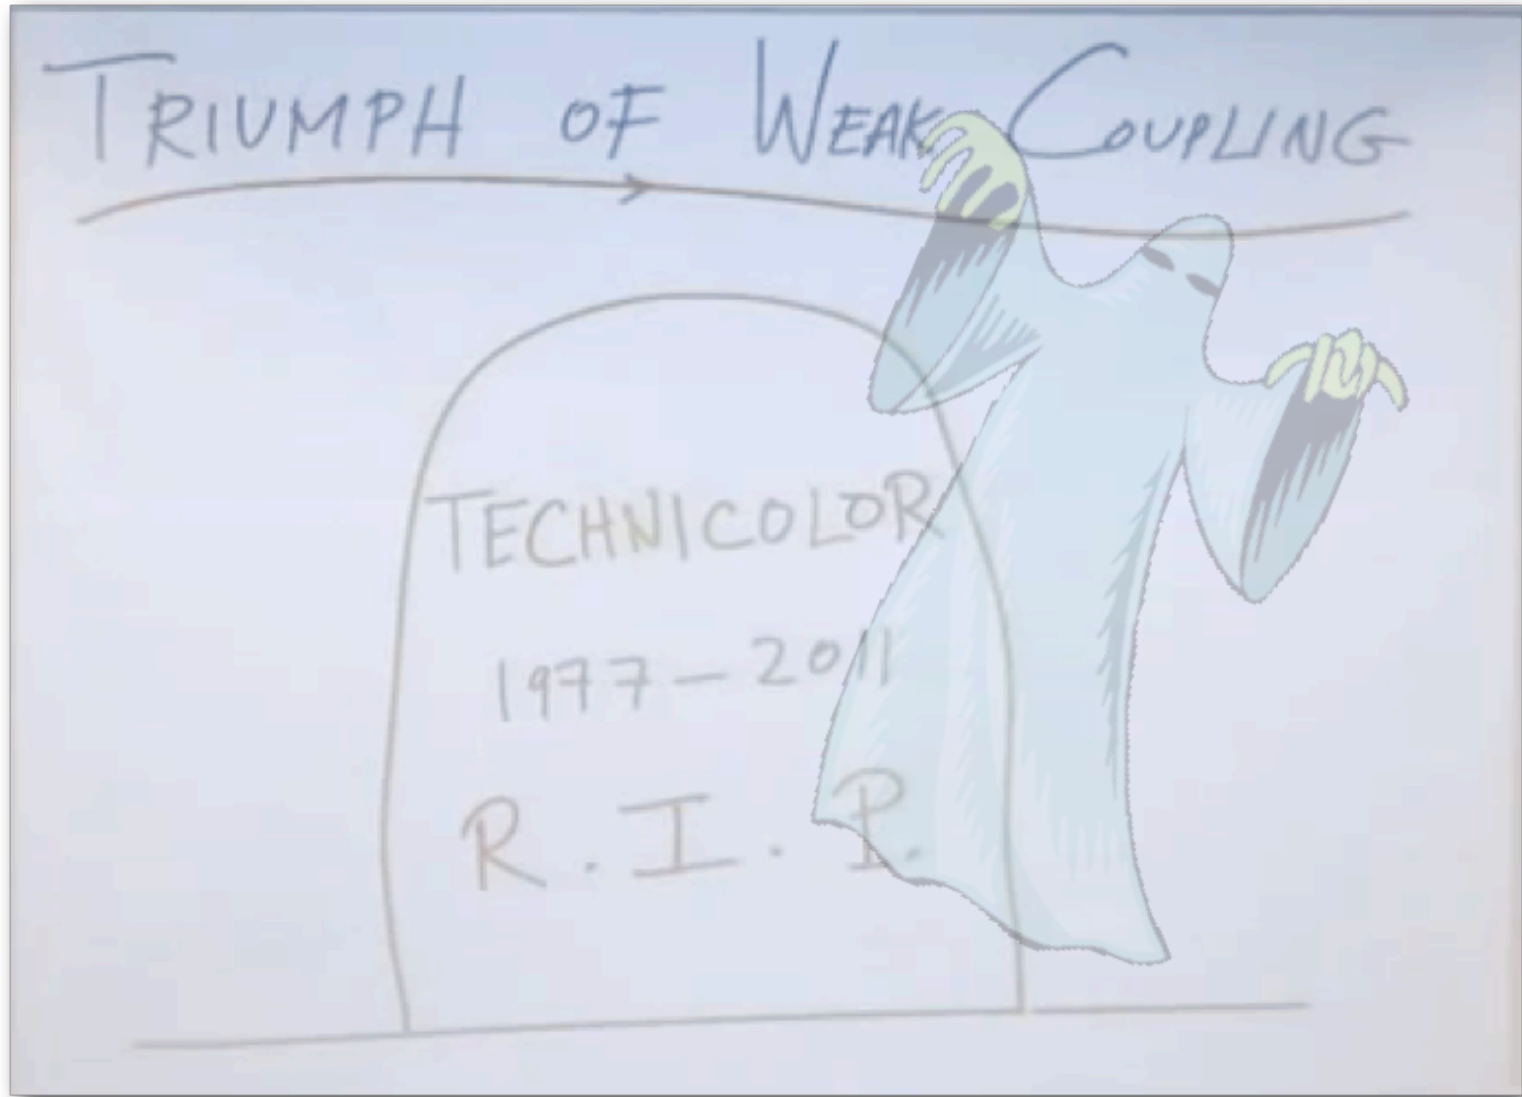 TRIUMPH OF WEAK COUPLING
TECHNICOLOR
1977-2011
R.I.P.